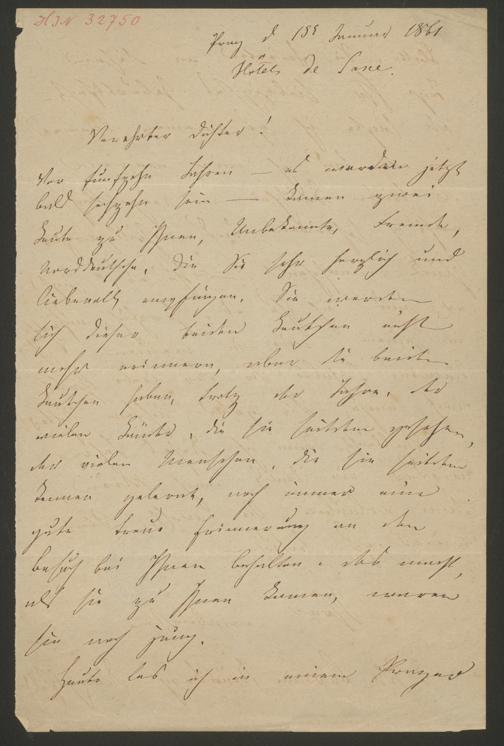 H.I.N 32750
Prag d 15t Januar 1861
Hôtel de Saxe.
Verehrter Dichter!
Vor fünfzehn Jahren — es werden jetzt
bald sechzehn sein — kamen zwei
Leute zu Ihnen, Unbekannte, Fremde,
Norddeutsche, die Sie sehr herzlich und
liebevoll empfingen. Sie werden
sich dieser beiden Leutchen nicht
mehr erinnern, aber die beiden
Leutchen haben, trotz der Jahre, der
vielen Länder, die sie seitdem gesehen,
der vielen Menschen, die sie seitdem
kennen gelernt, noch immer eine
gute treue Erinnerung an den
Besuch bei Ihnen behalten. das macht,
als sie zu Ihnen kamen, waren
sie noch jung.
Heute las ich in einem Prager